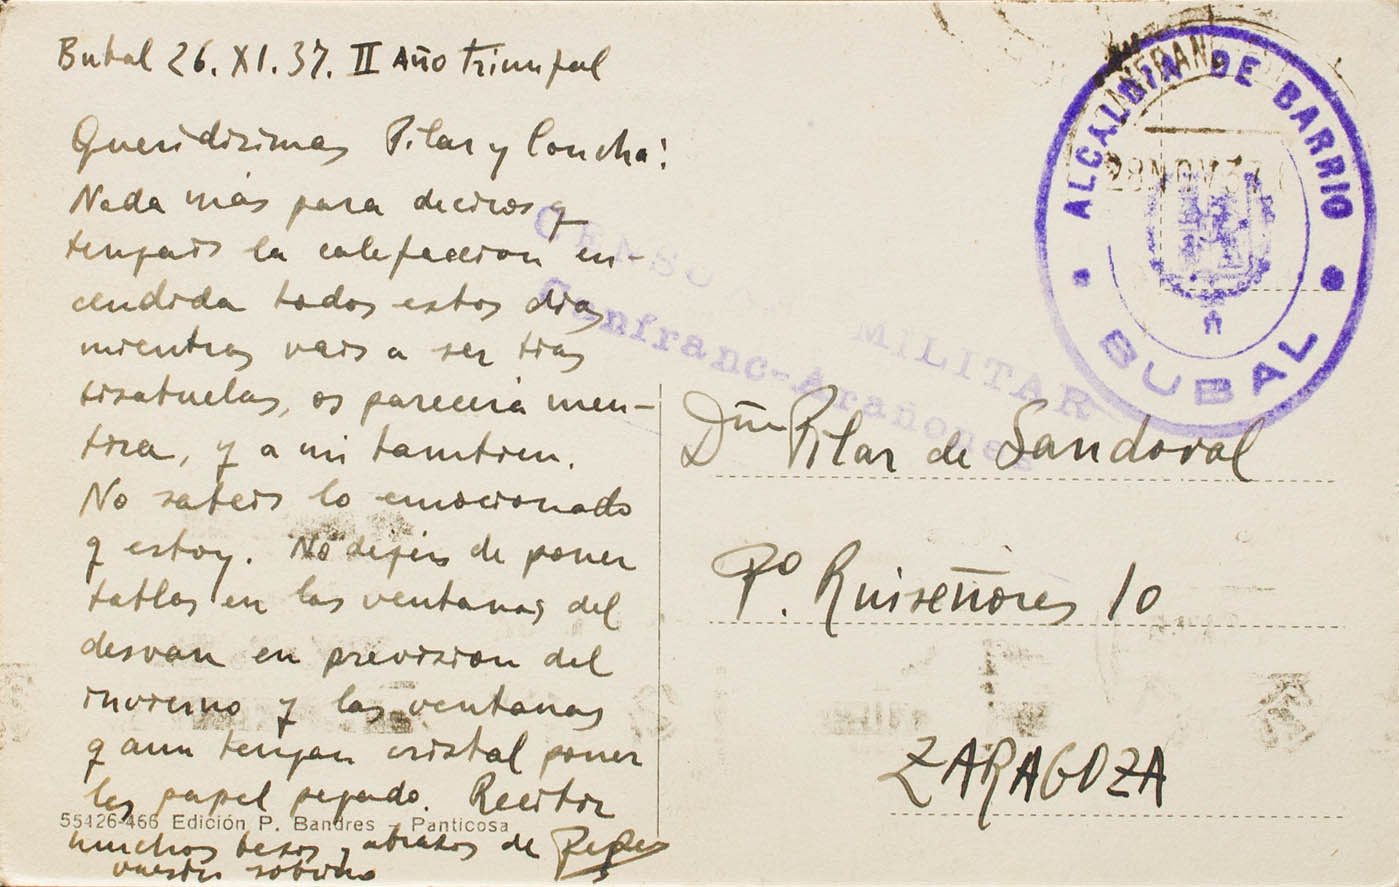 Bubal 26. XI. 37. II Año Triunfal
Queridisimas Pilar y Concha:
Nada más para deciros q
tengais la calefaccion en-
cendida todos estos dias
mientras vais a ser tias
bisabuelas, os parecerá men-
tira, y a mi tambien.
No sabeis lo emocionado
q estoy. No dejeis de poner
tablas en las ventanas del
desvan en prevision del
invierno y las ventanas
q aun tengan cristal poner
les papel pegado. Recibir
muchos besos y abrazos de Pepe
vuestro sobrino
55426-466 Edición P. Bandres - Panticosa
CENSURA MILITAR
Canfranc-Arañones
ALCALDIA DE BARRIO
BUBAL
CANFRANC
28 NOV 37
Dña Pilar de Sandoval
Pº. Ruiseñores 10
ZARAGOZA